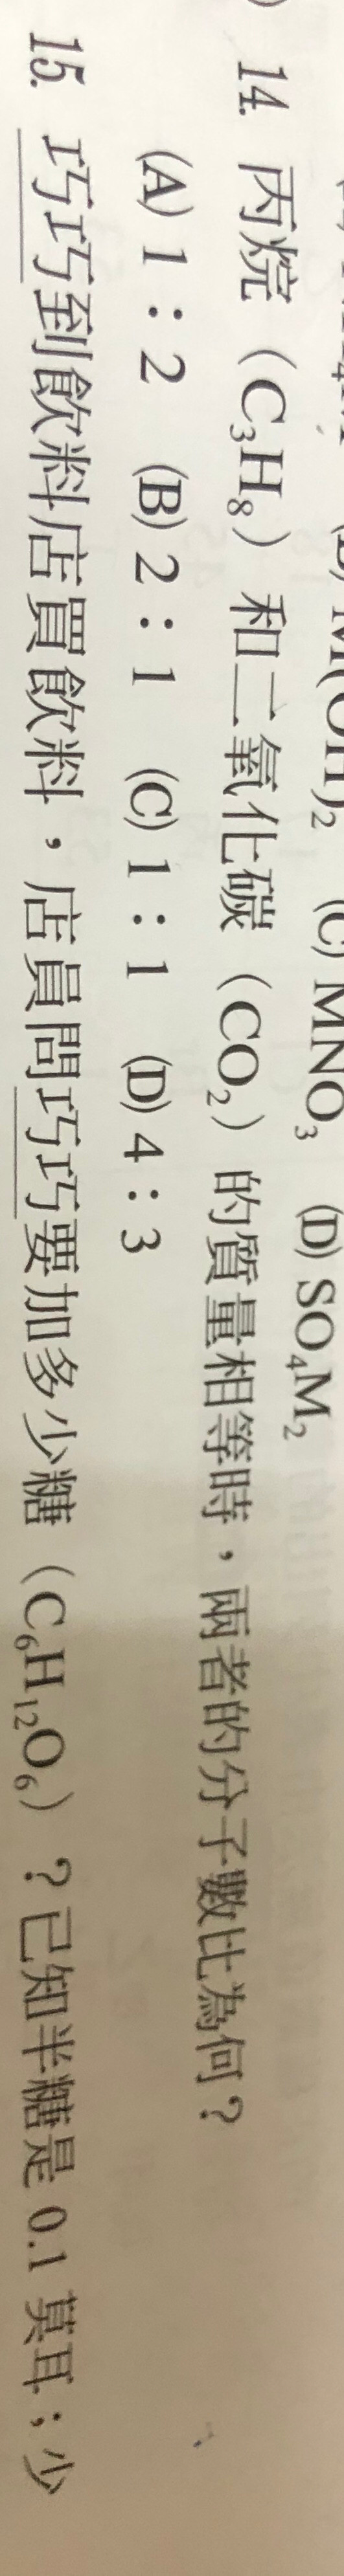 (C) MNO₃ (D) SO₄M₂
14. 丙烷（C₃H₈）和二氧化碳（CO₂）的質量相等時，兩者的分子數比為何？
(A) 1：2 (B) 2：1 (C) 1：1 (D) 4：3
15. 巧巧到飲料店買飲料，店員問巧巧要加多少糖（C₆H₁₂O₆）？已知半糖是 0.1 莫耳；少